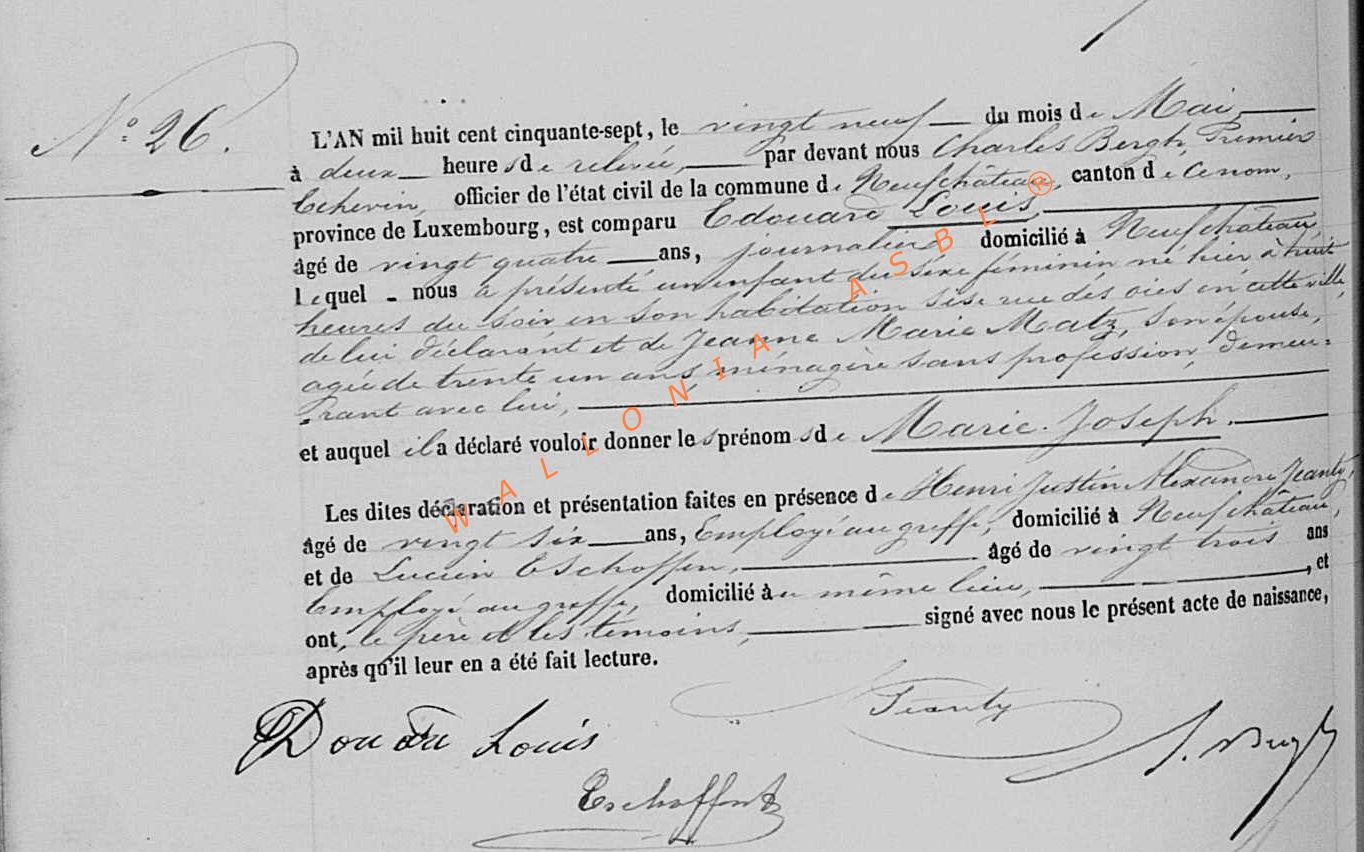 N° 26.
L'AN mil huit cent cinquante-sept, le vingt neuf du mois de Mai
à deux heures de relevée, par devant nous Charles Bergh, Premier
Echevin, officier de l'état civil de la commune de Neufchâteau, canton de
province de Luxembourg, est comparu Edouard Louis
âgé de vingt quatre ans, journalier domicilié à Neufchâteau
lequel nous a présenté un enfant du sexe féminin né hier à huit
heures du soir en son habitation sise rue des oies en cette ville,
de lui déclarant et de Jeanne Marie Matz, son épouse,
agée de trente un ans, ménagère sans profession, demeu-
rant avec lui,
et auquel il a déclaré vouloir donner les prénoms de Marie Joseph.
Les dites déclaration et présentation faites en présence de Henri Justin Alexandre Jeanty,
âgé de vingt six ans, Employé au greffe, domicilié à Neufchâteau,
et de Lucien âgé de vingt trois ans
Employé au greffe, domicilié au même lieu, et
ont, le père et les témoins, signé avec nous le présent acte de naissance,
après qu'il leur en a été fait lecture.
Louis
Jeanty
WALLONIA ASBL ®